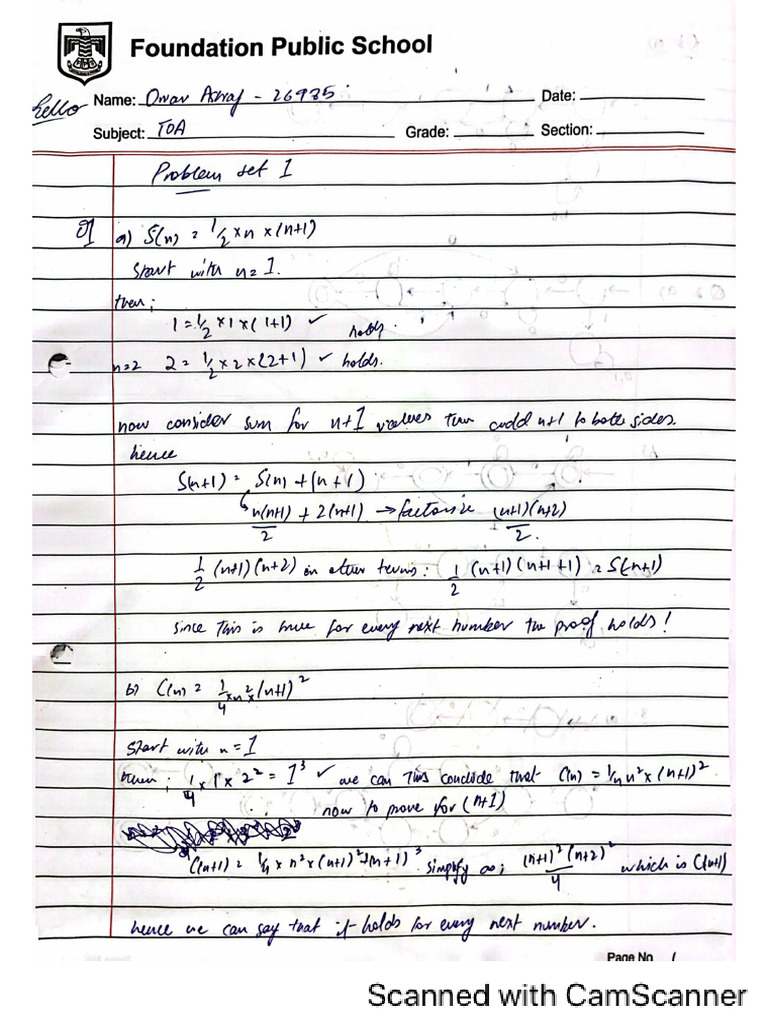 Foundation Public School
Hello
Name: Omar Ashraf - 26985 Date:
Subject: TOA Grade: Section:
Problem set 1
Q1 a) S(n) = 1/2 × n × (n+1)
Start with n = 1.
then;
1 = 1/2 × 1 × (1+1) ✓ holds.
n=2 2 = 1/2 × 2 × (2+1) ✓ holds.
now consider sum for n+1 values then add n+1 to both sides.
hence
S(n+1) = S(n) + (n+1)
n(n+1)/2 + 2(n+1) → factorize (n+1)(n+2)/2.
1/2 (n+1)(n+2) in other terms: 1/2 (n+1)(n+1+1) = S(n+1)
Since this is true for every next number the proof holds!
b) C(n) = 1/4 × n² × (n+1)²
Start with n = 1
then; 1/4 × 1 × 2² = 1³ ✓ we can this conclude that C(n) = 1/4 n² × (n+1)²
now to prove for (n+1)
C(n+1) = 1/4 × n² × (n+1)² + (n+1)³ simplify as; (n+1)²(n+2)²/4 which is C(n+1)
hence we can say that it holds for every next number.
Page No. 1
Scanned with CamScanner